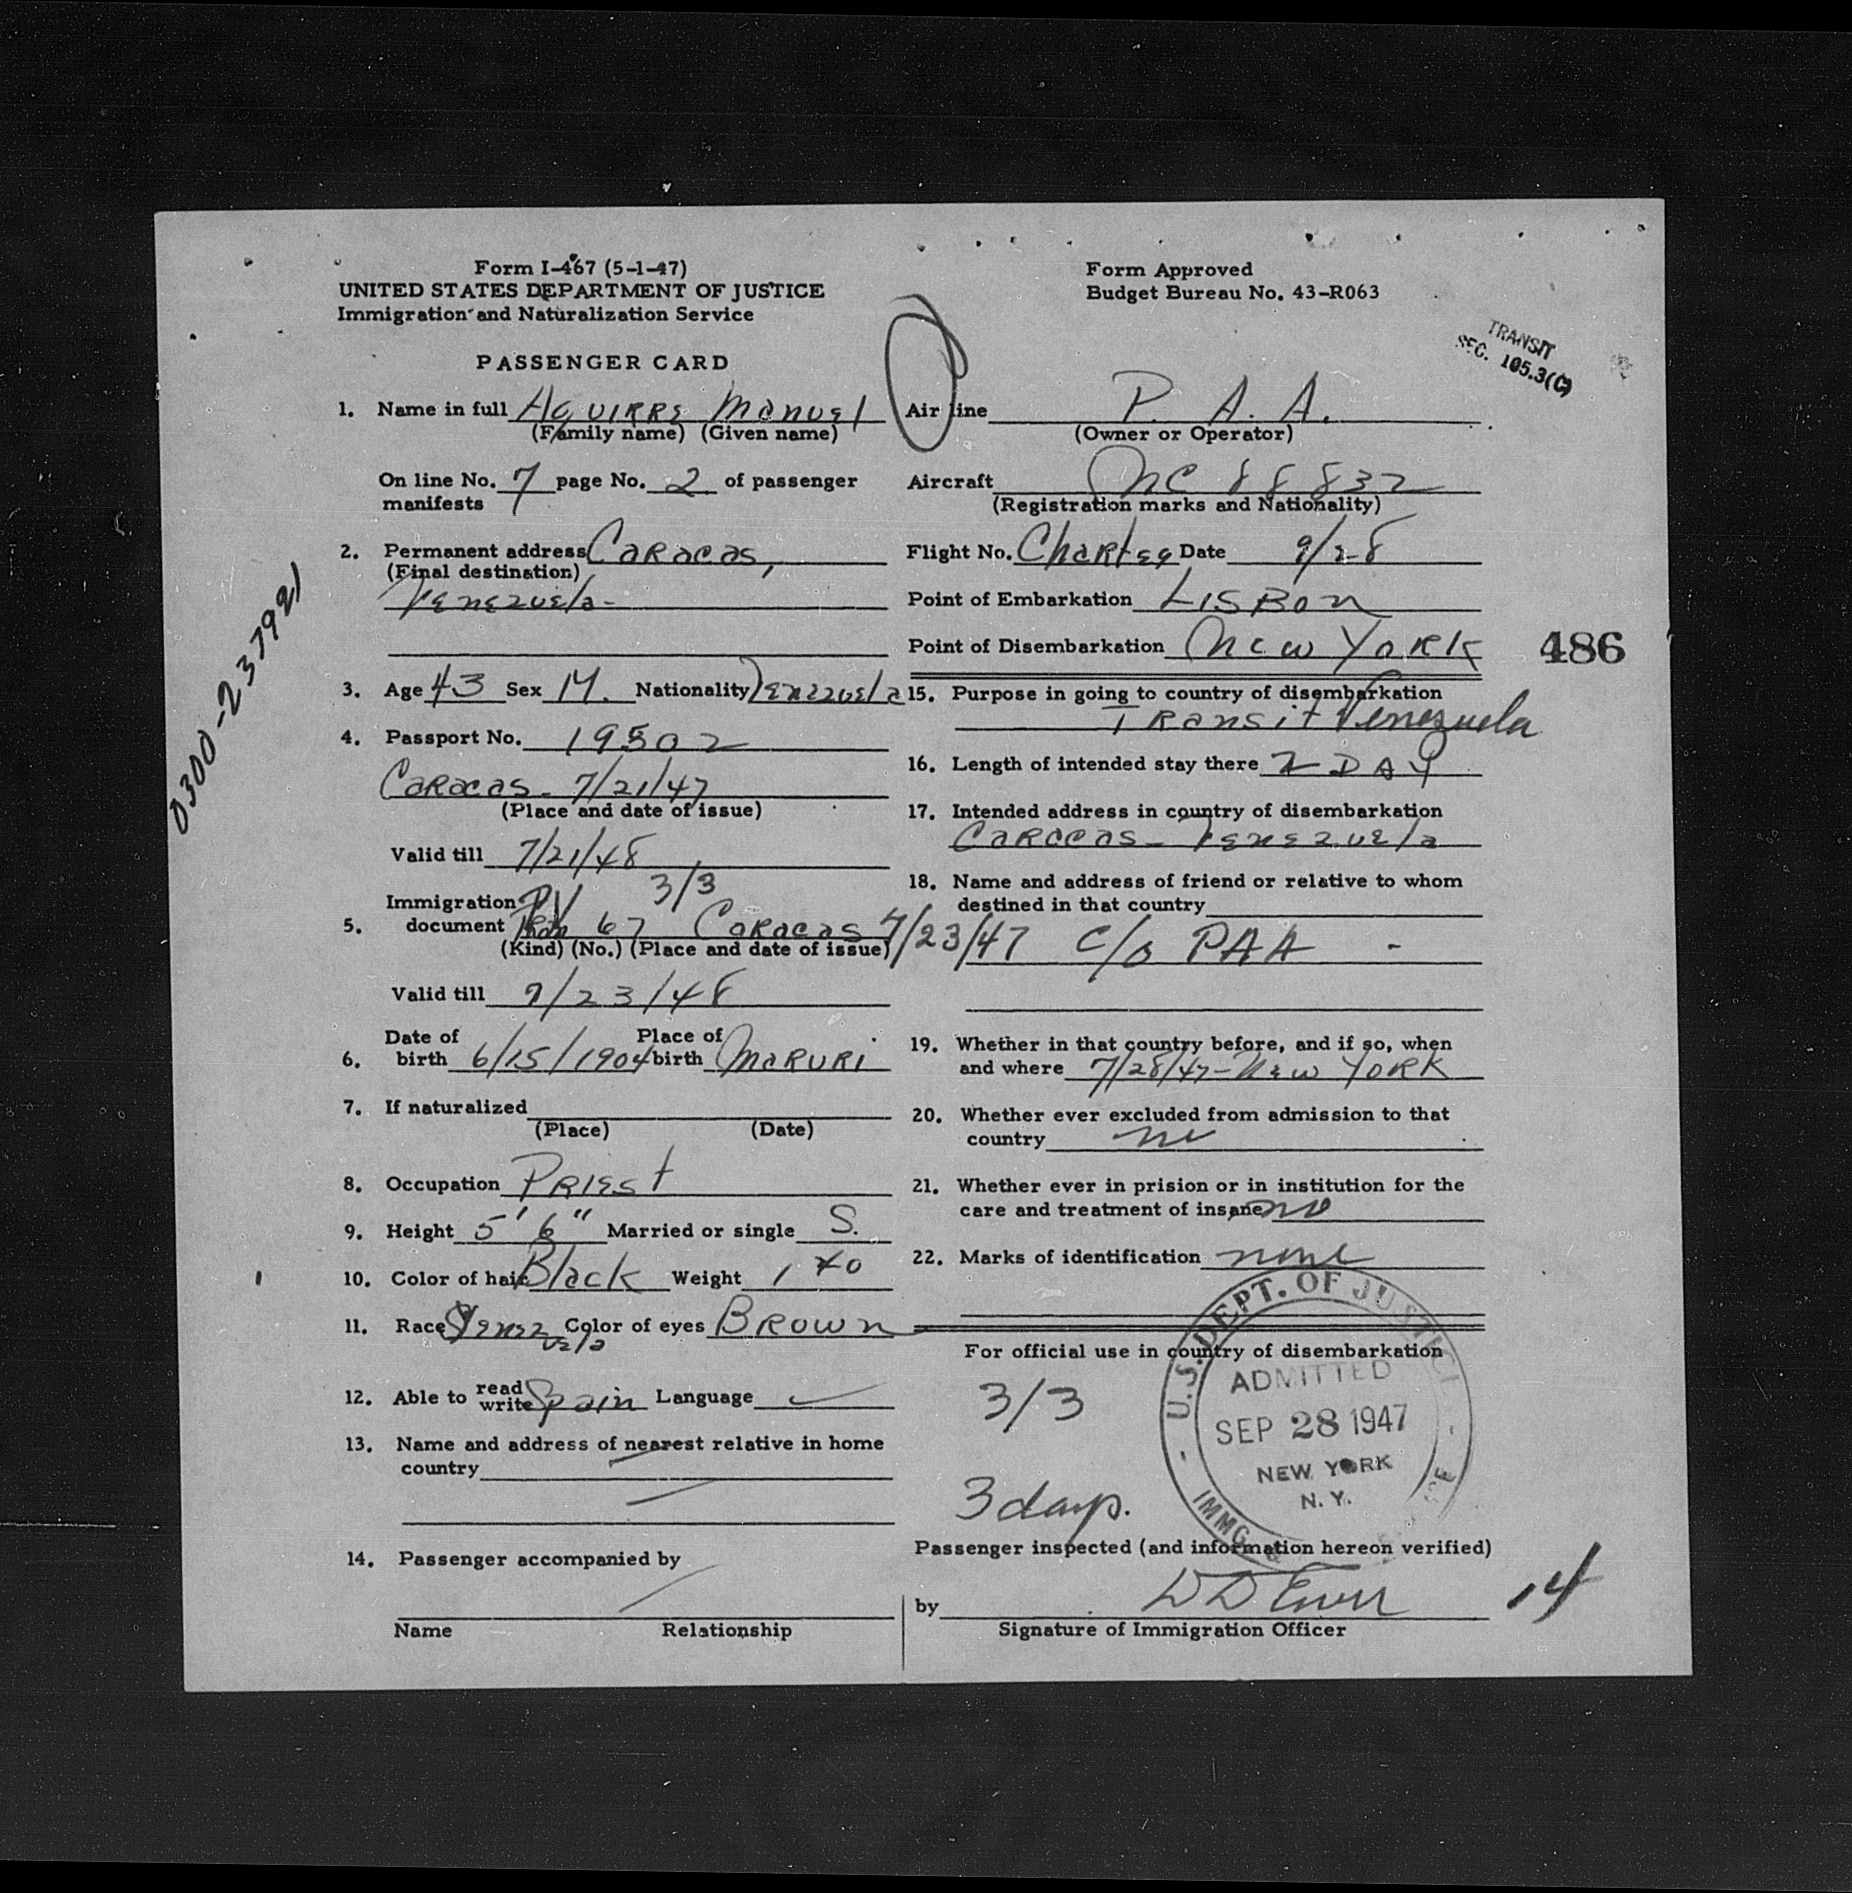 Form I-467 (5-1-47)
UNITED STATES DEPARTMENT OF JUSTICE
Immigration and Naturalization Service
PASSENGER CARD
Form Approved
Budget Bureau No. 43-R063
TRANSIT
SEC. 105.3(C)
1. Name in full Aguirre Manuel
(Family name) (Given name)
On line No. 7 page No. 2 of passenger
manifests
2. Permanent address Caracas,
(Final destination)
Venezuela-
3. Age 43 Sex M. Nationality Venezuela
4. Passport No. 19502
Caracas - 7/21/47
(Place and date of issue)
Valid till 7/21/48
3/3
Immigration PV
5. document 67 Caracas 7/23/47
(Kind) (No.) (Place and date of issue)
Valid till 7/23/48
Date of Place of
6. birth 6/15/1904 birth Maruri
7. If naturalized
(Place) (Date)
8. Occupation Priest
9. Height 5' 6" Married or single S.
10. Color of hair Black Weight 140
11. Race Venezuela Color of eyes Brown
12. Able to read write Spain Language ✓
13. Name and address of nearest relative in home
country
14. Passenger accompanied by
Name Relationship
0300-237921
Air line P. A. A.
(Owner or Operator)
Aircraft NC 88832
(Registration marks and Nationality)
Flight No. Charter Date 9/28
Point of Embarkation Lisbon
Point of Disembarkation New York
486
15. Purpose in going to country of disembarkation
Transit Venezuela
16. Length of intended stay there DAY
17. Intended address in country of disembarkation
Caracas - Venezuela
18. Name and address of friend or relative to whom
destined in that country
c/o PAA -
19. Whether in that country before, and if so, when
and where 7/28/47 - New York
20. Whether ever excluded from admission to that
country no
21. Whether ever in prision or in institution for the
care and treatment of insane no
22. Marks of identification none
For official use in country of disembarkation
3/3
3 days.
U.S. DEPT. OF JUSTICE
ADMITTED
SEP 28 1947
NEW YORK
N. Y.
IMMG. &
Passenger inspected (and information hereon verified)
by
Signature of Immigration Officer
14